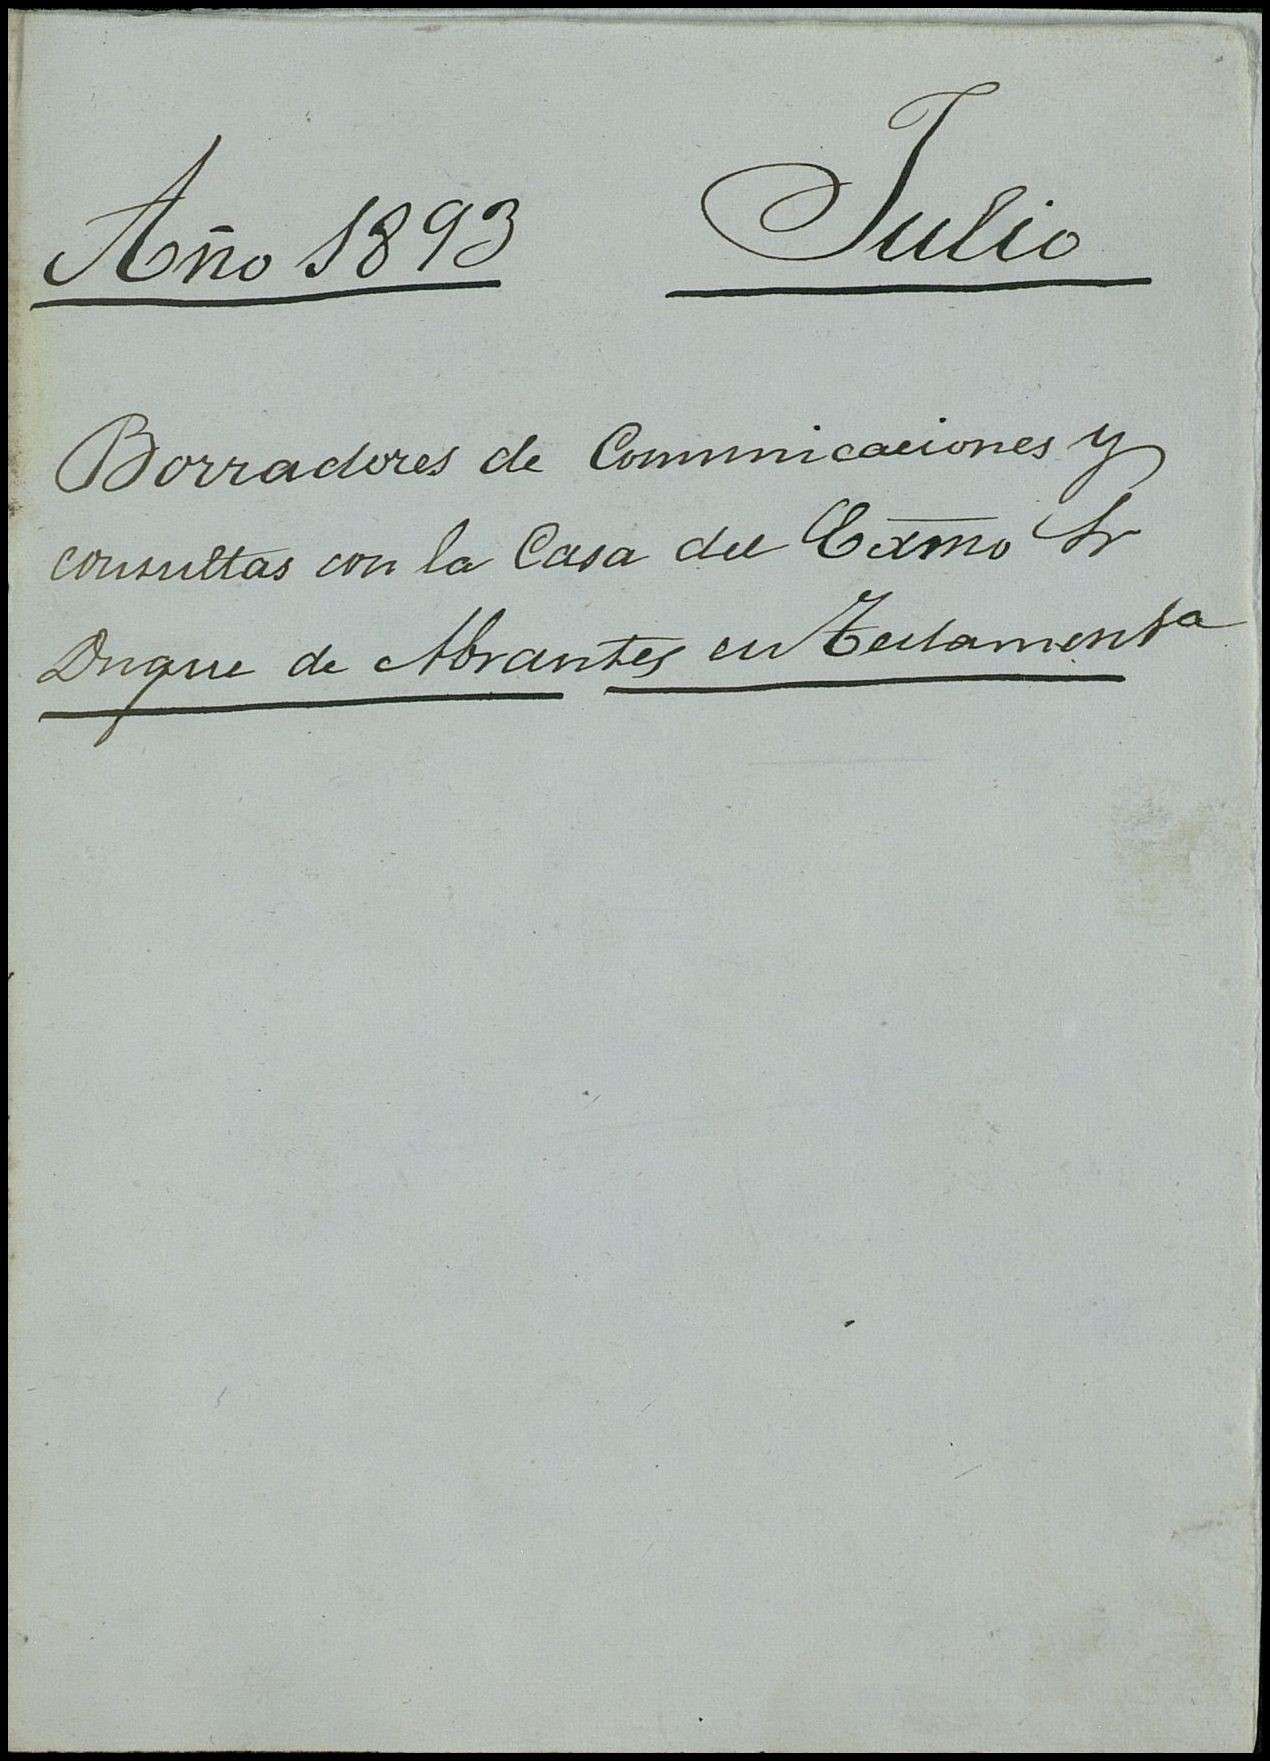 Año 1893 Julio
Borradores de Comunicaciones y
consultas con la Casa del Exmo Sr
Duque de Abrantes en Testamentª